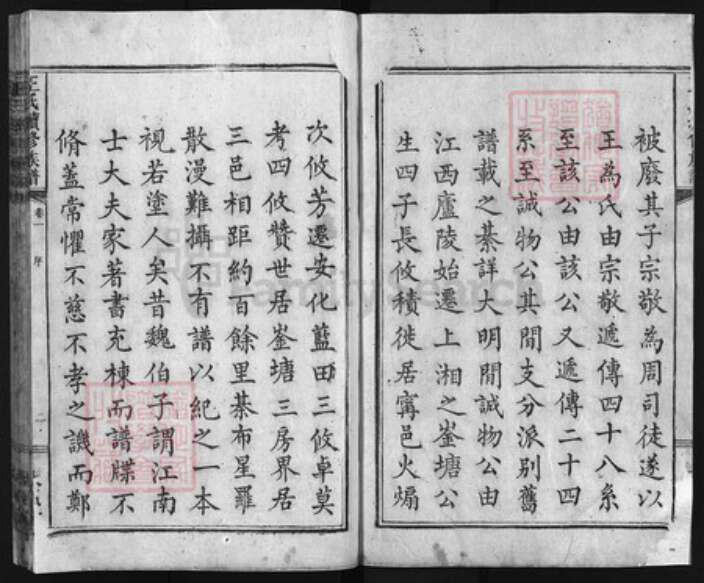 被廢其子宗敬為周司徒遂以
王為氏由宗敬遞傳四十八系
至該公由該公又遞傳二十四
系至誠物公其間支分派别舊
譜載之綦詳大明間誠物公由
江西廬陵始遷上湘之崟塘公
生四子長攸積徙居寧邑火煸
次攸芳遷安化藍田三攸卓莫
考四攸贊世居崟塘三房界居
三邑相距約百餘里綦布星羅
散漫難攝不有譜以紀之一本
視若塗人矣昔魏伯子謂江南
士大夫家著書充棟而譜牒不
脩蓋常懼不慈不孝之譏而鄭
王氏續修族譜
卷一
序
二
FamilySearch